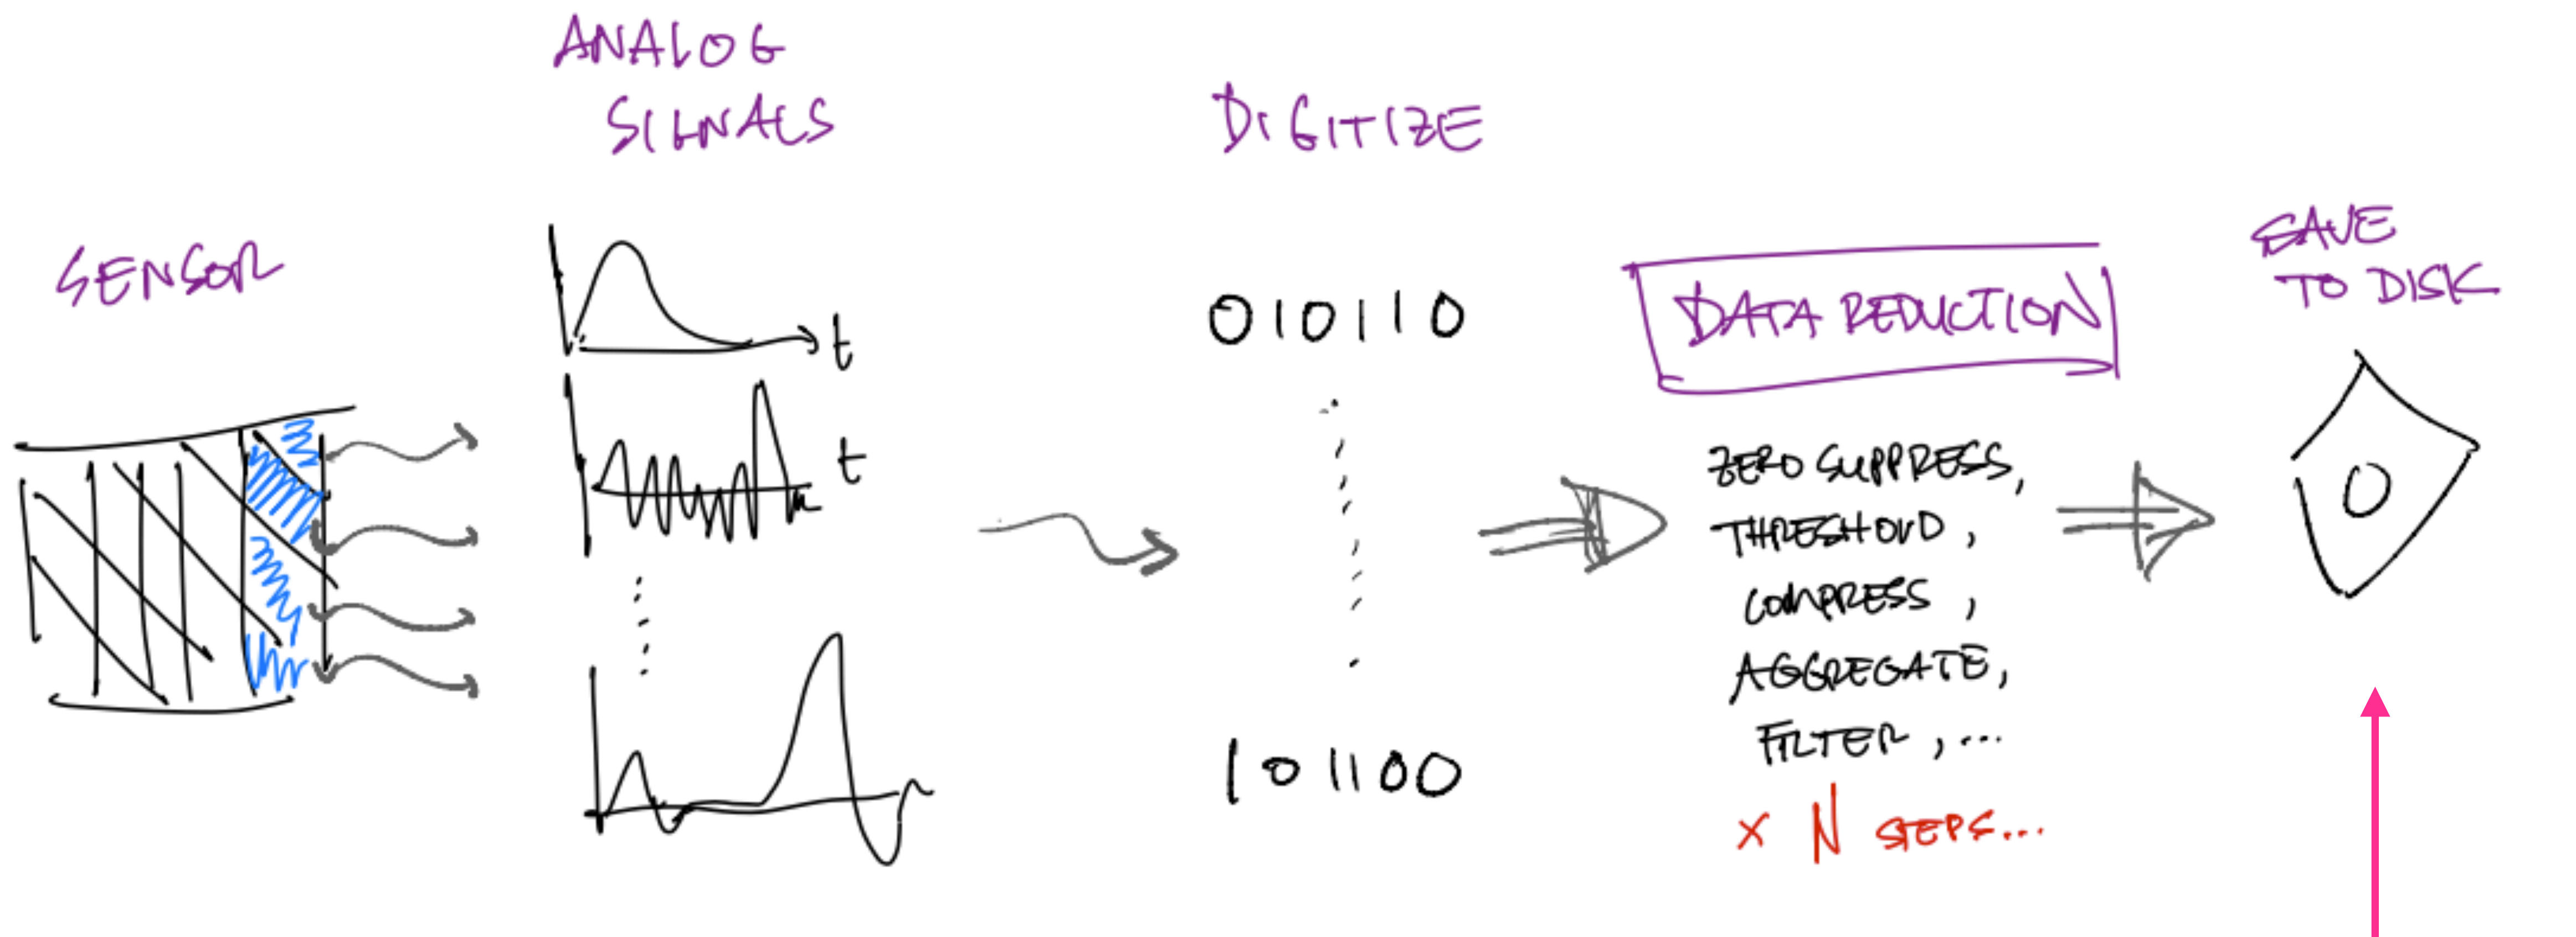 SENSOR
ANALOG
SIGNALS
t
t
DIGITIZE
010110
101100
DATA REDUCTION
ZERO SUPPRESS,
THRESHOLD,
COMPRESS,
AGGREGATE,
FILTER, ...
x N STEPS...
SAVE
TO DISK
0